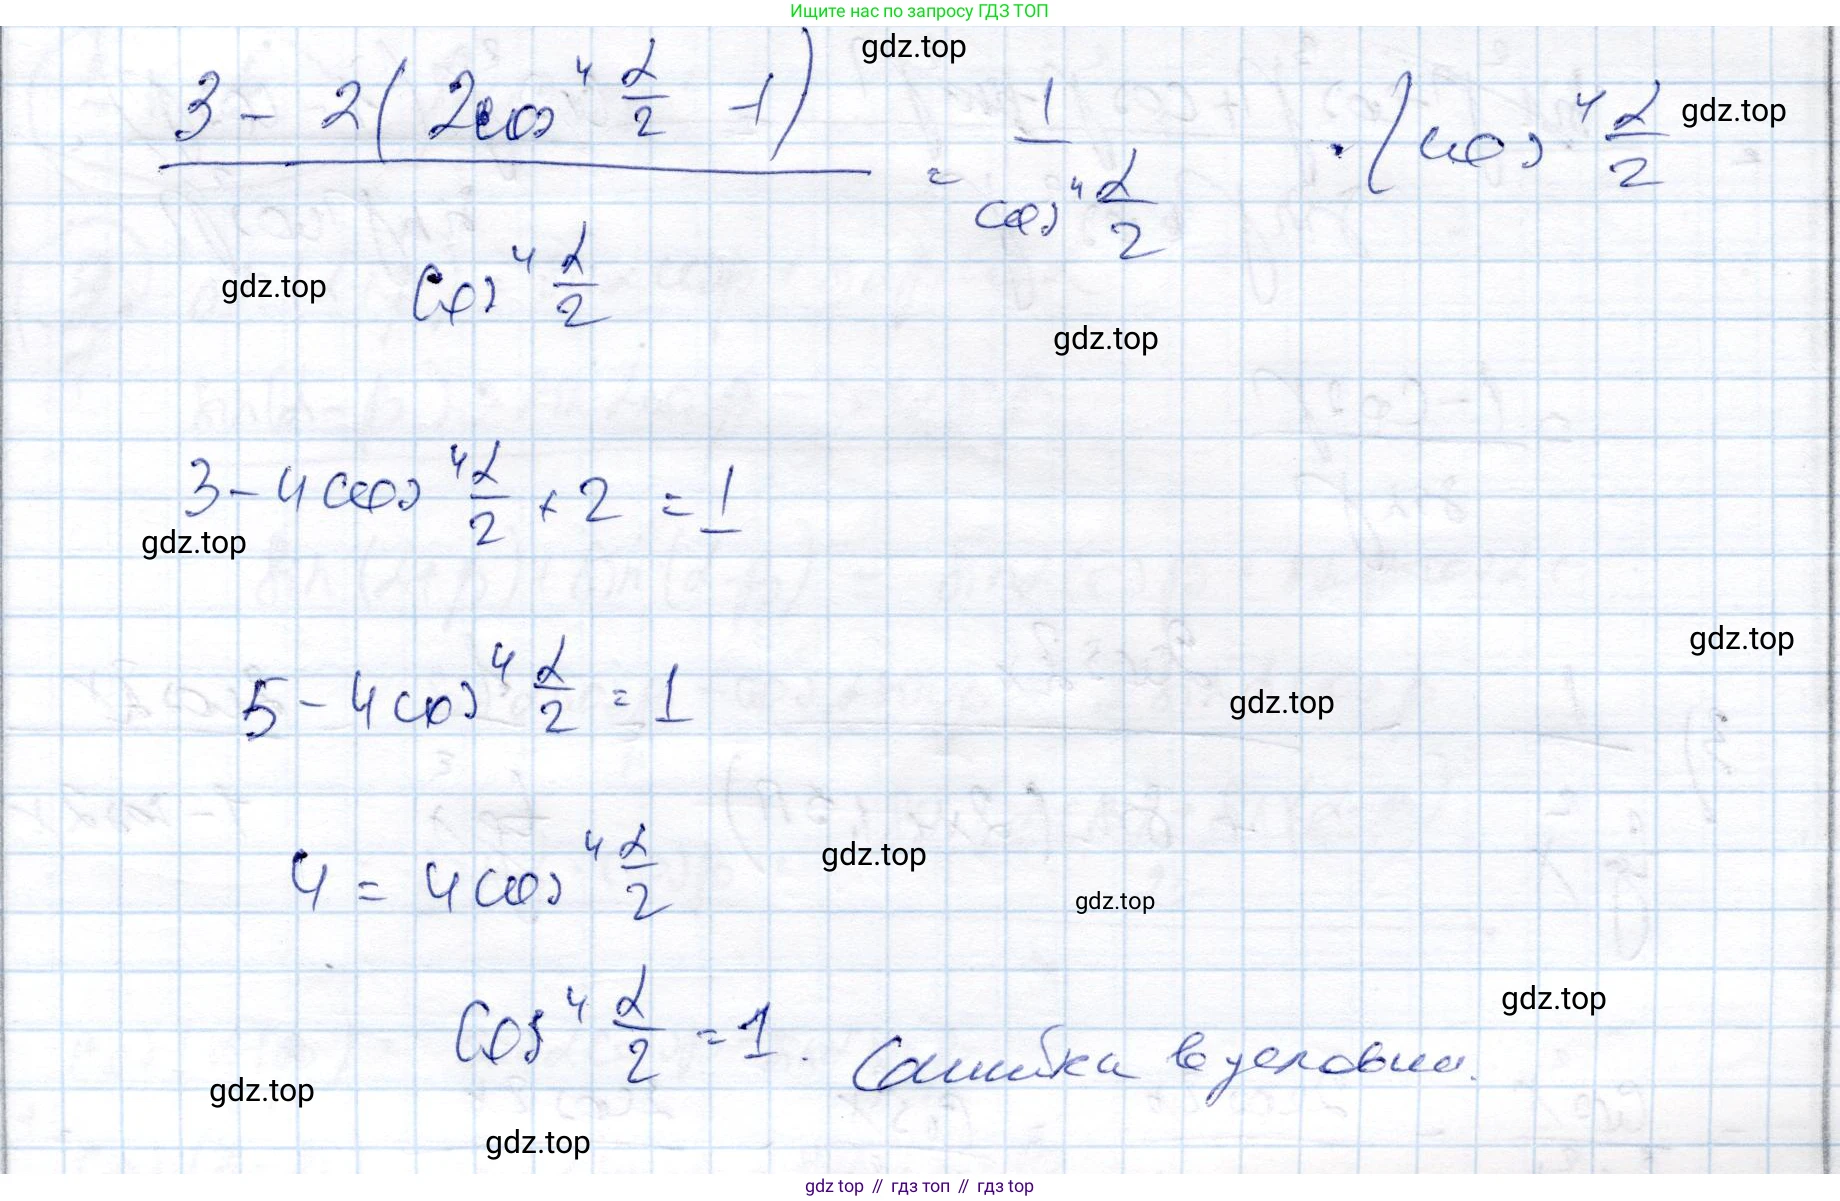 Ищите нас по запросу ГДЗ ТОП
gdz.top
(3 - 2(2cos⁴ α/2 - 1)) / (cos⁴ α/2) = 1 / (cos⁴ α/2) · (cos⁴ α/2
gdz.top
gdz.top
gdz.top
3 - 4cos⁴ α/2 + 2 = 1
gdz.top
gdz.top
5 - 4cos⁴ α/2 = 1
gdz.top
4 = 4cos⁴ α/2
gdz.top
gdz.top
cos⁴ α/2 = 1. Ошибка в условии.
gdz.top
gdz.top
gdz.top
gdz top // гдз топ // гдз top